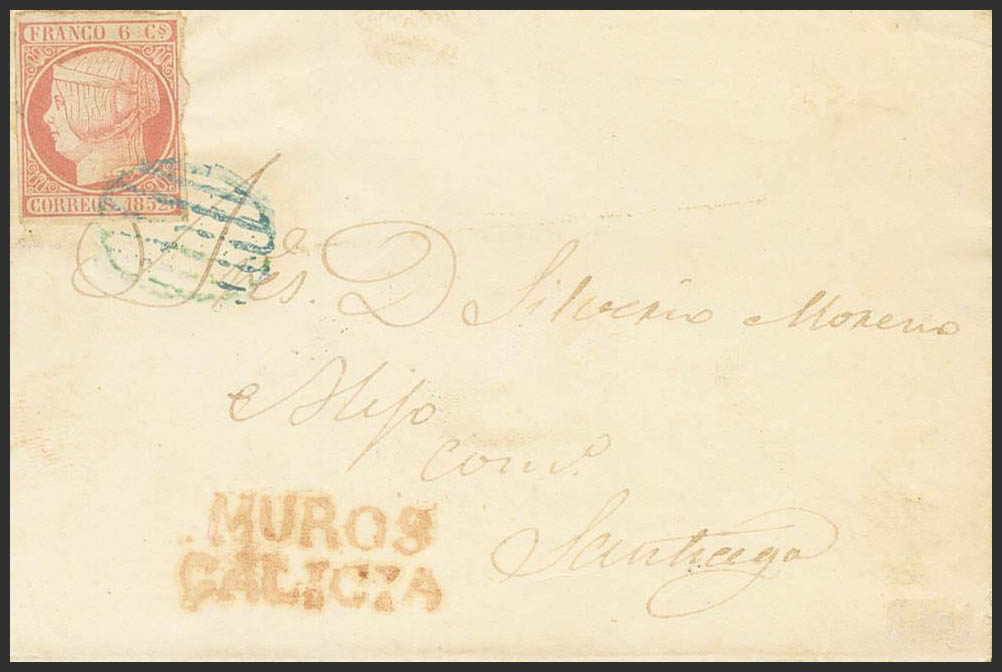 FRANCO 6 Cs
CORREOS 1852
D Silverio Moreno
é Hijo
Santiago
MUROS
GALICIA